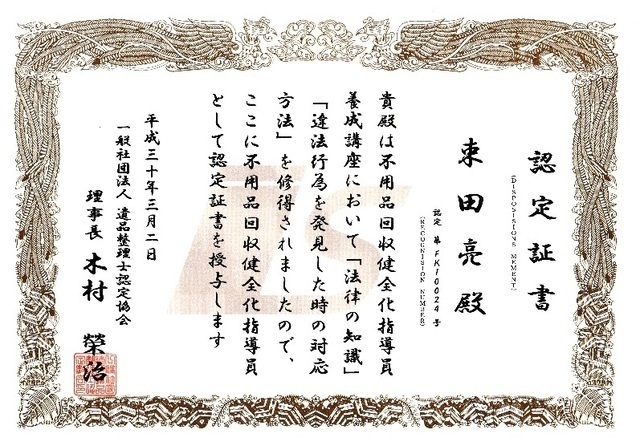 認定証書
(DISPOVISIONS MEMENT)
束田亮殿
認定 第FK10024号
(RECOGNISION NUMBER)
貴殿は不用品回収健全化指導員
養成講座において「法律の知識」
「違法行為を発見した時の対応
方法」を修得されましたので、
ここに不用品回収健全化指導員
として認定証書を授与します
平成三十年三月二日
一般社団法人 遺品整理士認定協会
理事長 木村 榮治